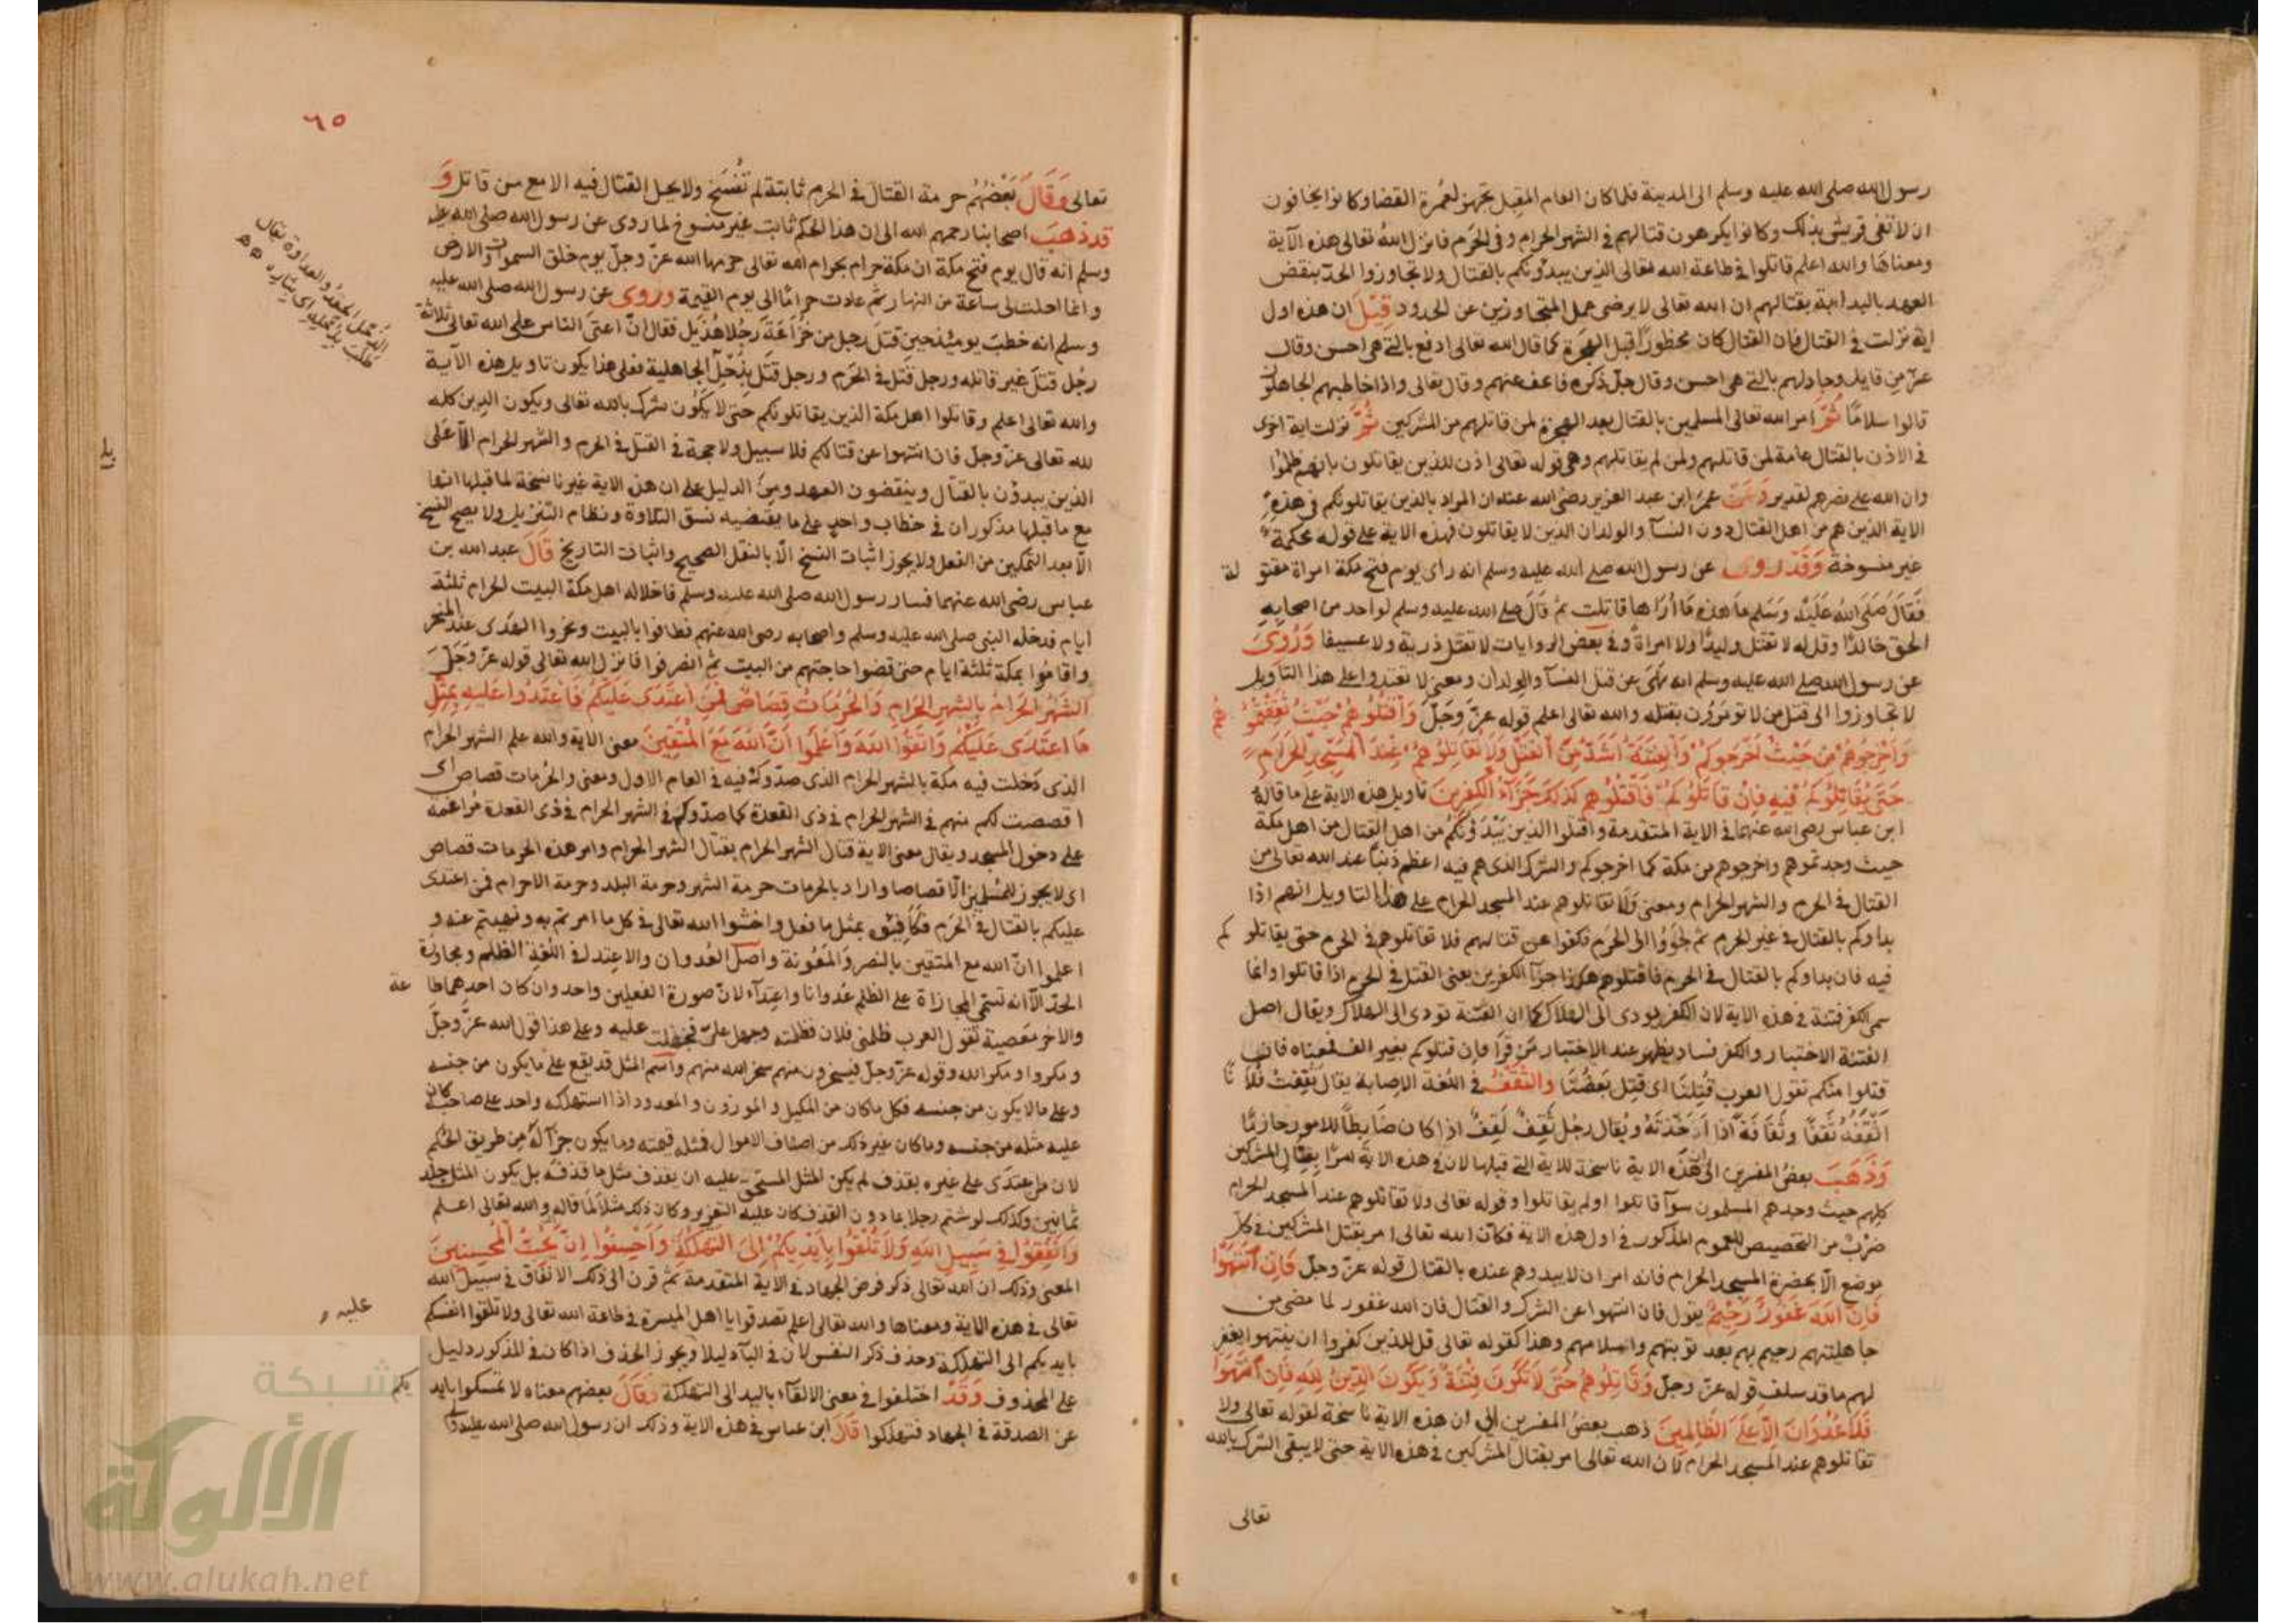 رسول الله صلى الله عليه وسلم الى المدينة فلما كان العام المقبل تجهز لعمرة القضا وكانوا يخافون
ان لا تفى قريش بذلك وكانوا يكرهون قتالهم فى الشهر الحرام وفى الحَرَم فانزل الله تعالى هذه الآية
ومعناها والله اعلم قاتلوا فى طاعة الله تعالى الذين يبدؤنكم بالقتال ولا تجاوزوا الحدّ بنقض
العهد بالبداية بقتالهم ان الله تعالى لا يرضى عمل المتجاوزين عن الحدود قِيْلَ ان هذه اول
اية نزلت فى القتال فان القتال كان محظورًا قبل الهجرة كما قال الله تعالى ادفع بالتى هى احسن وقال
عزّ مِن قايل وجادلهم بالتى هى احسن وقال جلّ ذكره فاعف عنهم وقال تعالى واذا خاطبهم الجاهلون
قالوا سلامًا ثُمَّ امر الله تعالى المسلمين بالقتال بعد الهجرة لمن قاتلهم من المشركين ثُمَّ نزلت اية اخرى
فى الاذن بالقتال عامة لمن قاتلهم ولمن لم يقاتلهم وهى قوله تعالى اذن للذين يقاتلون بانهم ظلموا
وان الله على نصرهم لقدير وَعَنْ عمرَ ابن عبد العزيز رضى الله عنه ان المراد بالذين يقاتلونكم فى هذهِ
الاية الذين هم من اهل القتال دون النسآ والولدان الذين لا يقاتلون فهذه الاية على قول عكرمة
غير منسوخة وَقَدْ روى عن رسول الله صلى الله عليه وسلم انه راى يوم فتح مكة امراة مقتو لة
فَقَالَ صَلَى اللهُ عَلَيْهِ وَسَلم ما هذه مَا اُرَاها قاتلت ثم قَالَ صلى الله عليه وسلم لواحد من اصحابِهِ
الحق خالدًا وقل له لا تقتل وليدًا ولا امراةً وفى بعض الروايات لا تقتل ذرية ولا عسيفا وَرُوِىَ
عن رسول الله صلى الله عليه وسلم انه نَهَى عن قتل النسآ والولدان ومعنى لا تعتدوا على هذا التاويل
لا تجاوزوا الى قتل من لا تؤمرون بقتله والله تعالى اعلم قوله عزّ وَجَلّ وَاقْتُلُوهُمْ حَيْثُ ثَقِفْتُمُو هُمْ
وَاَخْرِجُوهُمْ مِنْ حَيْثُ اَخْرَجُوكُمْ وَالْفِتْنَةُ اَشَدُّ مِنَ الْقَتْلِ وَلَا تُقَاتِلُوهُمْ عِنْدَ الْمَسْجِدِ الْحَرَامِ
حَتَّى يُقَاتِلُوكُمْ فِيهِ فَاِنْ قَاتَلُوكُمْ فَاقْتُلُوهُمْ كَذَلِكَ جَزَآءُ الْكَفِرِينَ تاويل هذه الاية على ما قالهُ
ابن عباس رضى الله عنهما فى الاية المتقدمة واقتلوا الذين يَبْدَؤنكُمْ من اهل القتال من اهل مكة
حيث وجدتموهم واخرجوهم من مكة كما اخرجوكم والشرك الذى هم فيه اعظم ذنبًا عند الله تعالى من
القتال فى الحرم والشهر الحرام ومعنى وَلَا تقاتلوهم عند المسجد الحرام على هذا التاويل انهم اذا
بداوكم بالقتال فى غير الحرم ثم لجَؤُا الى الحَرَم فكفوا عن قتالهم فلا تقاتلوهم فى الحرم حتى يقاتلو كم
فيه فان بداوكم بالقتال فى الحرم فاقتلوهم هكذا جزآ الكفرين يعنى القتل فى الحرم اذا قاتلوا وانما
سمى الكفر فتنة فى هذه الاية لان الكفر يودى الى الهلاك كما ان الفتنة تودى الى الهلاك ويقال اصل
الفتنة الاختبار والكفر فساد يظهر عند الاختبار مَن قَرَأ فان قتلوكم بغير الف فمعناه فان
قتلوا منكم تقول العرب قُتِلنَا اى قتِل بَعضُنَا والثَّقْفُ فى اللغة الاِصابة يقال ثَقِفْتُ فُلَا نًا
اَثْقَفُهُ ثَقفًا وثَقَافَةً اذا اَخَذتَهُ ويُقال رجُل ثَقِفٌ لَقِفٌ اذا كان ضَابِطًا للامور حازمًا
وَذَهَبَ بعضُ المفسرين الى ان هَذِه الاية ناسخة للاية التى قبلها لان فى هذه الاية امرًا بقتالِ المشركين
كلهم حيث وجدهم المسلمون سوآ قاتلوا او لم يقاتلوا وقوله تعالى ولا تقاتلوهم عند المسجد الحرام
ضرْبٌ من التخصيص للعموم المذكور فى اول هذه الاية فكان الله تعالى امر بقتل المشركين فى كل
موضع الّا بحضرة المسجد الحرام فانه امر ان لا يبدوهم عنده بالقتال قوله عزّ وجلّ فَاِنِ انْتَهَوْا
فَاِنَّ اللهَ غَفُورٌ رَحِيْمٌ يقول فان انتهوا عن الشرك والقتال فان الله غفور لما مضى من
جاهليتهم رحيم بهم بعد توبتهم واسلامهم وهذا كقوله تعالى قل للذين كفروا ان ينتهوا يغفر
لهم ما قد سلف قوله عزّ وجلّ وَقَاتِلُوهُمْ حَتَّى لَا تَكُونَ فِتْنَةٌ وَيَكُونَ الدِّينُ لِلهِ فَاِنِ انْتَهَوْا
فَلَا عُدْوَانَ اِلَّا عَلَى الظَّالِمِينَ ذهب بعضُ المفسرين الى ان هذه الاية ناسخة لقوله تعالى ولا
تقاتلوهم عند المسجد الحرام لان الله تعالى امر بقتال المشركين فى هذه الاية حتى لا يبقى الشرك بالله
تعالى
٦٥
تعالى وَقَالَ بَعْضُهُم حرمة القتال فى الحرم ثابتة لم تُنْسَخ ولا يحل القتال فيه الا مع من قاتل وَ
قد ذهبَ اصحابنا رحمهم الله الى ان هذا الحكم ثابت غير منسوخ لما روى عن رسول الله صلى الله عليه
وسلم انه قال يوم فتح مكة ان مكة حرام بحرام الله تعالى حرمها الله عزّ وجلّ يوم خلق السموات والارض
وانما احلت لى ساعة من النهار ثم عادت حرامًا الى يوم القيمة وروى عن رسول الله صلى الله عليه
وسلم انه خطبَ يومئذ حين قتلَ رجل من خُزَاعَةَ رجُلا هُذَيل فقال انّ اعتى الناس على الله تعالى ثلاثة
رجُل قتلَ غير قاتله ورجل قتَل فى الحَرَم ورجل قتَل بذَحْلِ الجاهلية فعلى هذا يكون تاويل هذه الآية
والله تعالى اعلم وقاتلوا اهل مكة الذين يقاتلونكم حتى لا يَكُون شرك بالله تعالى ويكون الدين كله
لله تعالى عزّ وجلّ فان انتهوا عن قتالكم فلا سبيل ولا حجة فى القتل فى الحرم والشهر الحرام اِلَّا عَلى
الذين يبدؤن بالقتال وينقضون العهد ومِنَ الدليل على ان هذه الاية غير ناسخة لما قبلها انها
مع ما قبلها مذكوران فى خطاب واحدٍ على ما يقتضيه نسق التلاوة ونظام التنزيل ولا يصح النسخ
الّا بعد التمكين من الفعل ولا يجوز اثبات النسخ الّا بالنقل الصحيح واثبات التاريخ قَالَ عبد الله بن
عباس رضى الله عنهما فسار رسول الله صلى الله عليه وسلم فاخلا له اهل مكة البيت الحرام ثلثة
ايام فدخله النبى صلى الله عليه وسلم واصحابه رضى الله عنهم فطافوا بالبيت ونحروا الهَدى عند المنحر
واقامُوا بمكة ثلثة ايام حتى قضوا حاجتهم من البيت ثم انصرفوا فانزل الله تعالى قوله عزّ وَجَلّ
اَلشَهْرُ الْحَرَامُ بِالشَّهْرِ الْحَرَامِ وَالْحُرُمَاتُ قِصَاصٌ فَمَنِ اعْتَدَى عَلَيْكُمْ فَاعْتَدُوا عَلَيهِ بِمِثْلِ
مَا اعْتَدَى عَلَيْكُمْ وَاتَّقُوا اللهَ وَاعْلَمُوا اَنَّ اللهَ مَعَ الْمُتَّقِينَ معنى الاية والله علم الشهر الحرام
الذى دَخلت فيه مكة بالشهر الحرام الذى صدّوك فيه فى العام الاول ومعنى والحُرمات قصاص اى
اقتصصت لكم منهم فى الشهر الحرام فى ذى القعدة كما صدّوكم فى الشهر الحرام فى ذى القعدة مُراغمة
على دخول المسجد ويقال معنى الاية قتال الشهر الحرام بقتال الشهر الحرام وامر هذه الحرمات قصاص
اى لا يجوز للمسلمين الّا قصاصا واراد بالحرمات حرمة الشهر وحرمة البلد وحرمة الاحرام فمن اعتدى
عليكم بالقتال فى الحَرَم فكَافِئوه بمثل ما فعل واخشوا الله تعالى فى كل ما امرتم به ونهيتم عنه و
اعلموا انّ الله مع المتقين بالنصر وَالمَعُونة واصل العُدوان والاعتداء فى اللغةِ الظلم ومجاوزة
الحدّ الّا انه تسمّى المجازاة على الظلم عُدوانا واعتِداء لانّ صورة الفعلين واحد وان كان احدهما طا عة
والاخر مَعصية تقول العرب ظلمنى فلان فظلمته وجهل علىّ فجهلت عليه وعلى هذا قول الله عزّ وجلّ
ومكروا ومكر الله وقوله عزّ وجلّ فيسخرون منهم سخر الله منهم واسم المثل قد يقع على ما يكون من جنسه
وعلى ما لا يكون من جنسه فكل ما كان من المكيل والموزون والمعدود اذا استهلكه واحد على صاحبه كان
عليه مثله من جنسه وما كان غير ذلك من اصناف الاموال فمثله قيمته وما يكون جزآ لهُ مِن طريق الحُكم
لان من اعتدَى على غيره بقذف لم يكن المثل المستحق عليه ان يقذف مثل ما قذفَه بل يكون المثل جلد
ثمانين وكذلك لو شتم رجلا بما دون القذف كان عليه التعزير وكان ذلك مثلًا لما قاله والله تعالى اعلم
وَاَنْفِقُوا فِى سَبِيلِ اللهِ وَلَا تُلْقُوا بِاَيْدِيكُمْ اِلَى التَّهْلُكَةِ وَاَحْسِنُوا اِنَّ يُحِبُّ الْمُحْسِنِينَ
المعنى وذلك ان الله تعالى ذكر فرض الجهاد فى الاية المتقدمة ثم قرن الى ذلك الانفاق فى سبيل الله
تعالى فى هذه الاية ومعناها والله تعالى اعلم تصدقوا يا اهل الميسرة فى طاعة الله تعالى ولا تلقوا انفسكم
بايديكم الى التهلكة وحذف ذكر النفس لان فى البآء دليلا ويجوز الحذف اذا كان فى المذكور دليل
على المحذوف وَقَدْ اختلفوا فى معنى الالقآء باليد الى التهلكة فقَالَ بعضهم معناه لا تمسكوا بايد يكم
عن الصدقة فى الجهاد فتهلكوا قَالَ ابن عباس فى هذه الاية وذلك ان رسول الله صلى الله عليه
الذحل الحقد والعداوة يقال
طلب بذحله اى بثاره
عليه
شبكة
الألوكة
www.alukah.net